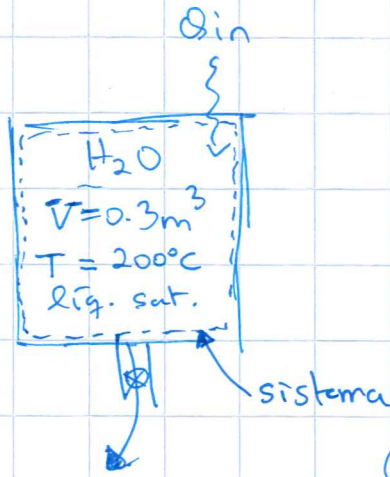 Qin
H₂O
V=0.3m³
T = 200°C
líq. sat.
sistema